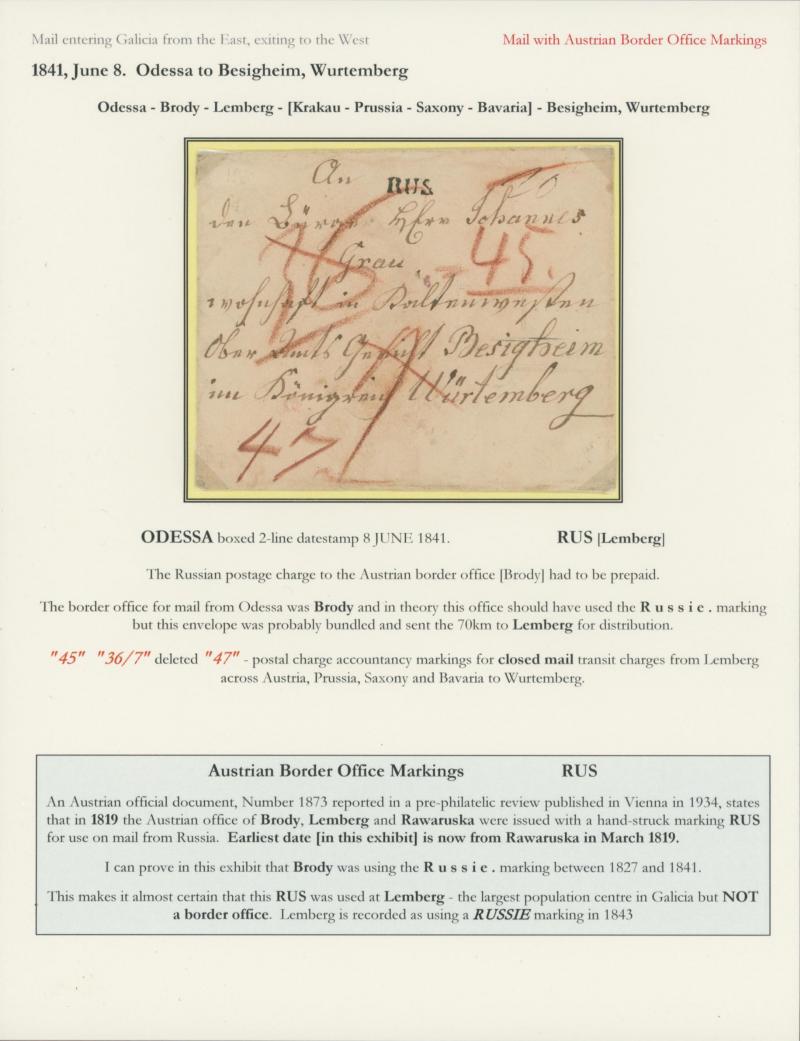 Mail entering Galicia from the East, exiting to the West
Mail with Austrian Border Office Markings
1841, June 8. Odessa to Besigheim, Wurtemberg
Odessa - Brody - Lemberg - [Krakau - Prussia - Saxony - Bavaria] - Besigheim, Wurtemberg
An
RUS
den Bürger Herr Johannes
Grau
45.
wohnhaft in Kaltenwesten
Ober Amts Gericht Besigheim
im Königreich Würtemberg
47
ODESSA boxed 2-line datestamp 8 JUNE 1841.
RUS [Lemberg]
The Russian postage charge to the Austrian border office [Brody] had to be prepaid.
The border office for mail from Odessa was Brody and in theory this office should have used the R u s s i e . marking
but this envelope was probably bundled and sent the 70km to Lemberg for distribution.
"45" "36/7" deleted "47" - postal charge accountancy markings for closed mail transit charges from Lemberg
across Austria, Prussia, Saxony and Bavaria to Wurtemberg.
Austrian Border Office Markings RUS
An Austrian official document, Number 1873 reported in a pre-philatelic review published in Vienna in 1934, states
that in 1819 the Austrian office of Brody, Lemberg and Rawaruska were issued with a hand-struck marking RUS
for use on mail from Russia. Earliest date [in this exhibit] is now from Rawaruska in March 1819.
I can prove in this exhibit that Brody was using the R u s s i e . marking between 1827 and 1841.
This makes it almost certain that this RUS was used at Lemberg - the largest population centre in Galicia but NOT
a border office. Lemberg is recorded as using a RUSSIE marking in 1843